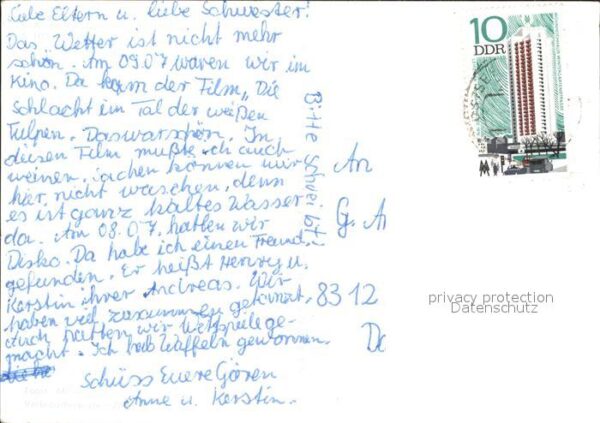 Liebe Eltern u. liebe Schwester!
Das Wetter ist nicht mehr
schön. Am 09.07 waren wir im
Kino. Da kam der Film „Die
Schlacht im Tal der weißen
Tulpen. Das war schön. In
diesen Film mußte ich auch
weinen. Sachen können wir
hier nicht waschen, denn
es ist ganz kaltes Wasser
da. Am 08.07. hatten wir
Disko. Da habe ich einen Freund
gefunden. Er heißt Henry u.
Kerstin ihrer Andreas. Wir
haben viel zusammen getanzt.
Auch hatten wir Wettspiele ge-
macht. Ich hab Waffeln gewonnen.
Schüss Euere Gören
Anne u. Kerstin.
Bitte schreibt!
An
G. A
8312
Do
10
DDR
privacy protection
Datenschutz